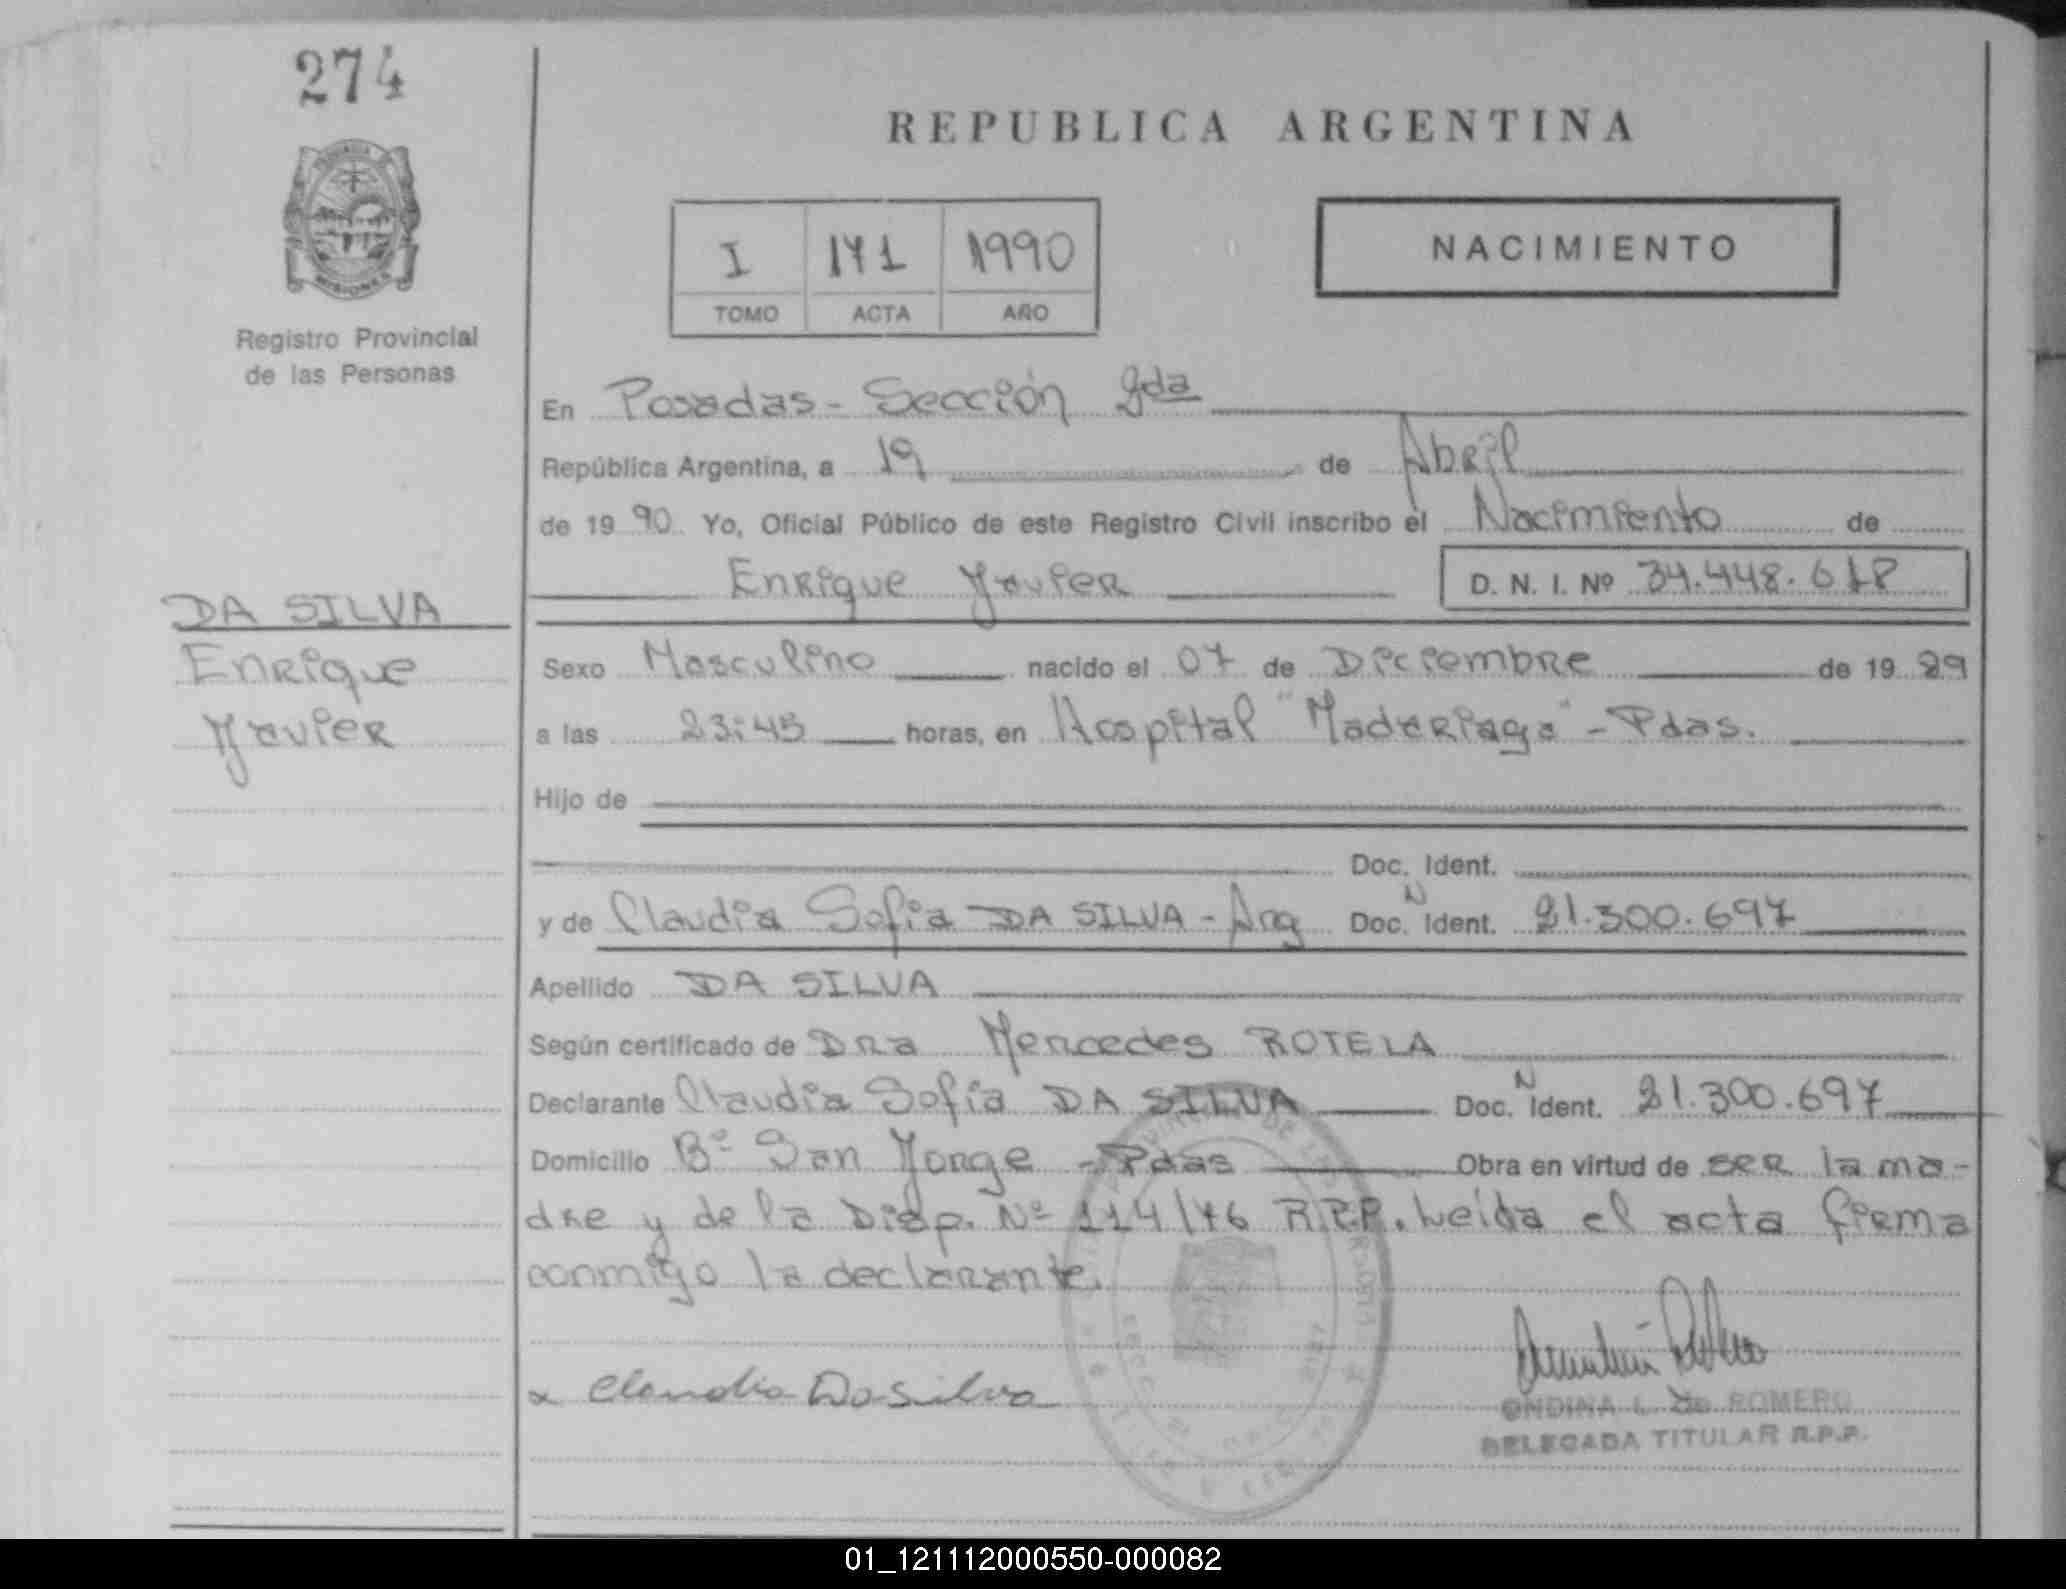 274
REPUBLICA ARGENTINA
I 171 1990
TOMO ACTA AÑO
NACIMIENTO
MISIONES
Registro Provincial
de las Personas
En Posadas - Sección 2da
República Argentina, a 19 de Abril
de 1990. Yo, Oficial Público de este Registro Civil inscribo el Nacimiento de
Enrique Javier D. N. I. Nº 34.448.618
DA SILVA
Enrique
Javier
Sexo Masculino nacido el 07 de Diciembre de 1989
a las 23:45 horas, en Hospital "Madariaga" - Pdas.
Hijo de
Doc. Ident.
y de Claudia Sofia DA SILVA - Arg Doc. N Ident. 21.300.697
Apellido DA SILVA
Según certificado de DRa Mercedes ROTELA
Declarante Claudia Sofía DA SILVA Doc. N Ident. 21.300.697
Domicilio Bº San Jorge - Pdas Obra en virtud de ser la ma-
dre y de la Disp. Nº 114/76 R.P.P. Leída el acta firma
conmigo la declarante.
x Claudia Da silva
ONDINA L. de ROMERO
DELEGADA TITULAR R.P.P.
01_121112000550-000082